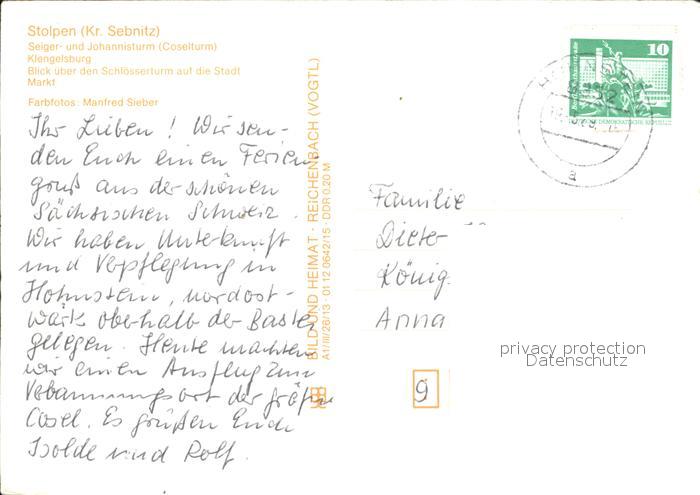 Stolpen (Kr. Sebnitz)
Seiger- und Johannisturm (Coselturm)
Klengelsburg
Blick über den Schlösserturm auf die Stadt
Markt
Farbfotos: Manfred Sieber
Ihr Lieben! Wir sen-
den Euch einen Ferien-
gruß aus der schönen
Sächsischen Schweiz.
Wir haben Unterkunft
und Verpflegung in
Hohnstein, nordost-
wärts oberhalb der Bastei
gelegen. Heute machten
wir einen Ausflug zum
Verbannungsort der Gräfin
Cosel. Es grüßen Euch
Isolde und Rolf.
BILD UND HEIMAT · REICHENBACH (VOGTL)
A1/III/26/13 · 01 12 0642/15 DDR 0,20 M
10
a
Familie
Dieter
König
Anna
9
privacy protection
Datenschutz